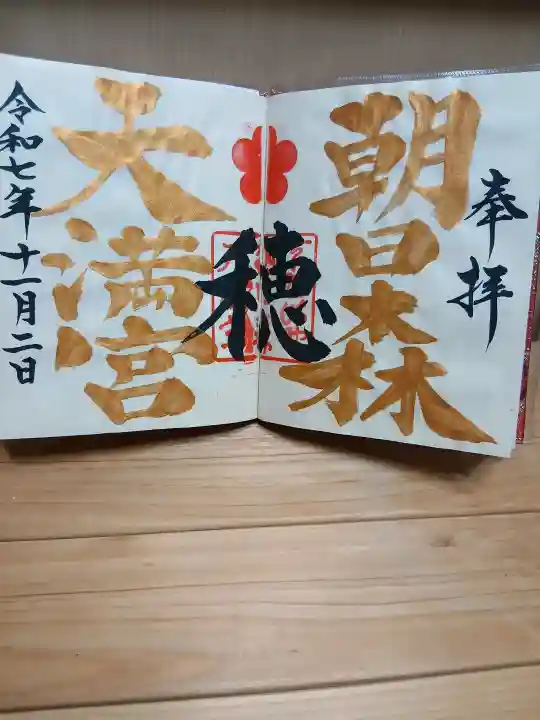 奉拝
朝日森
穂
天満宮
令和七年十一月二日